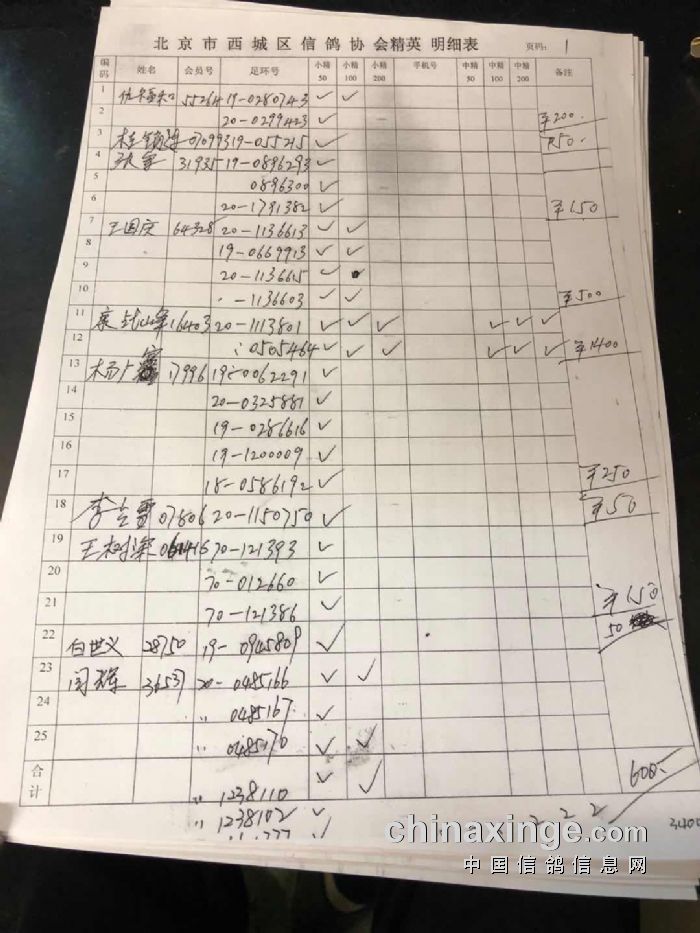 北京市西城区信鸽协会精英明细表 页码: 1
编码 姓名 会员号 足环号 小精50 小精100 小精200 手机号 中精50 中精100 中精200 备注
1 55264 19-0280743 ✓ ✓
2 20-0299423 ✓ ¥200-
3 070993 19-055215 ✓ ¥50-
4 31935 19-0896293 ✓
5 0896300 ✓
6 20-1791382 ✓ ¥150
7 王国庆 64328 20-1136613 ✓ ✓
8 19-0669913 ✓ ✓
9 20-1136615 ✓
10 -1136603 ✓ ✓ ¥500
11 16403 20-1113801 ✓ ✓ ✓ ✓ ✓ ✓
12 0505464 ✓ ✓ ✓ ✓ ✓ ✓ ¥1400
13 杨广 17996 19-0062291 ✓
14 20-0325881 ✓
15 19-0286616 ✓
16 19-1200009 ✓
17 18-0586192 ✓ ¥250
18 07806 20-1150750 ✓ ¥50
19 王树深 70-121393 ✓
20 70-012660 ✓
21 70-121386 ✓ ¥150
22 白世义 28750 19-0945809 ✓ 50
23 闫辉 36537 20-0485166 ✓ ✓
24 〃 0485167 ✓
25 〃 0485170 ✓ ✓
合计 〃 1238110 ✓ ✓ 600-
〃 1238102 ✓ 2 2 2
chinaxinge.com
中国信鸽信息网